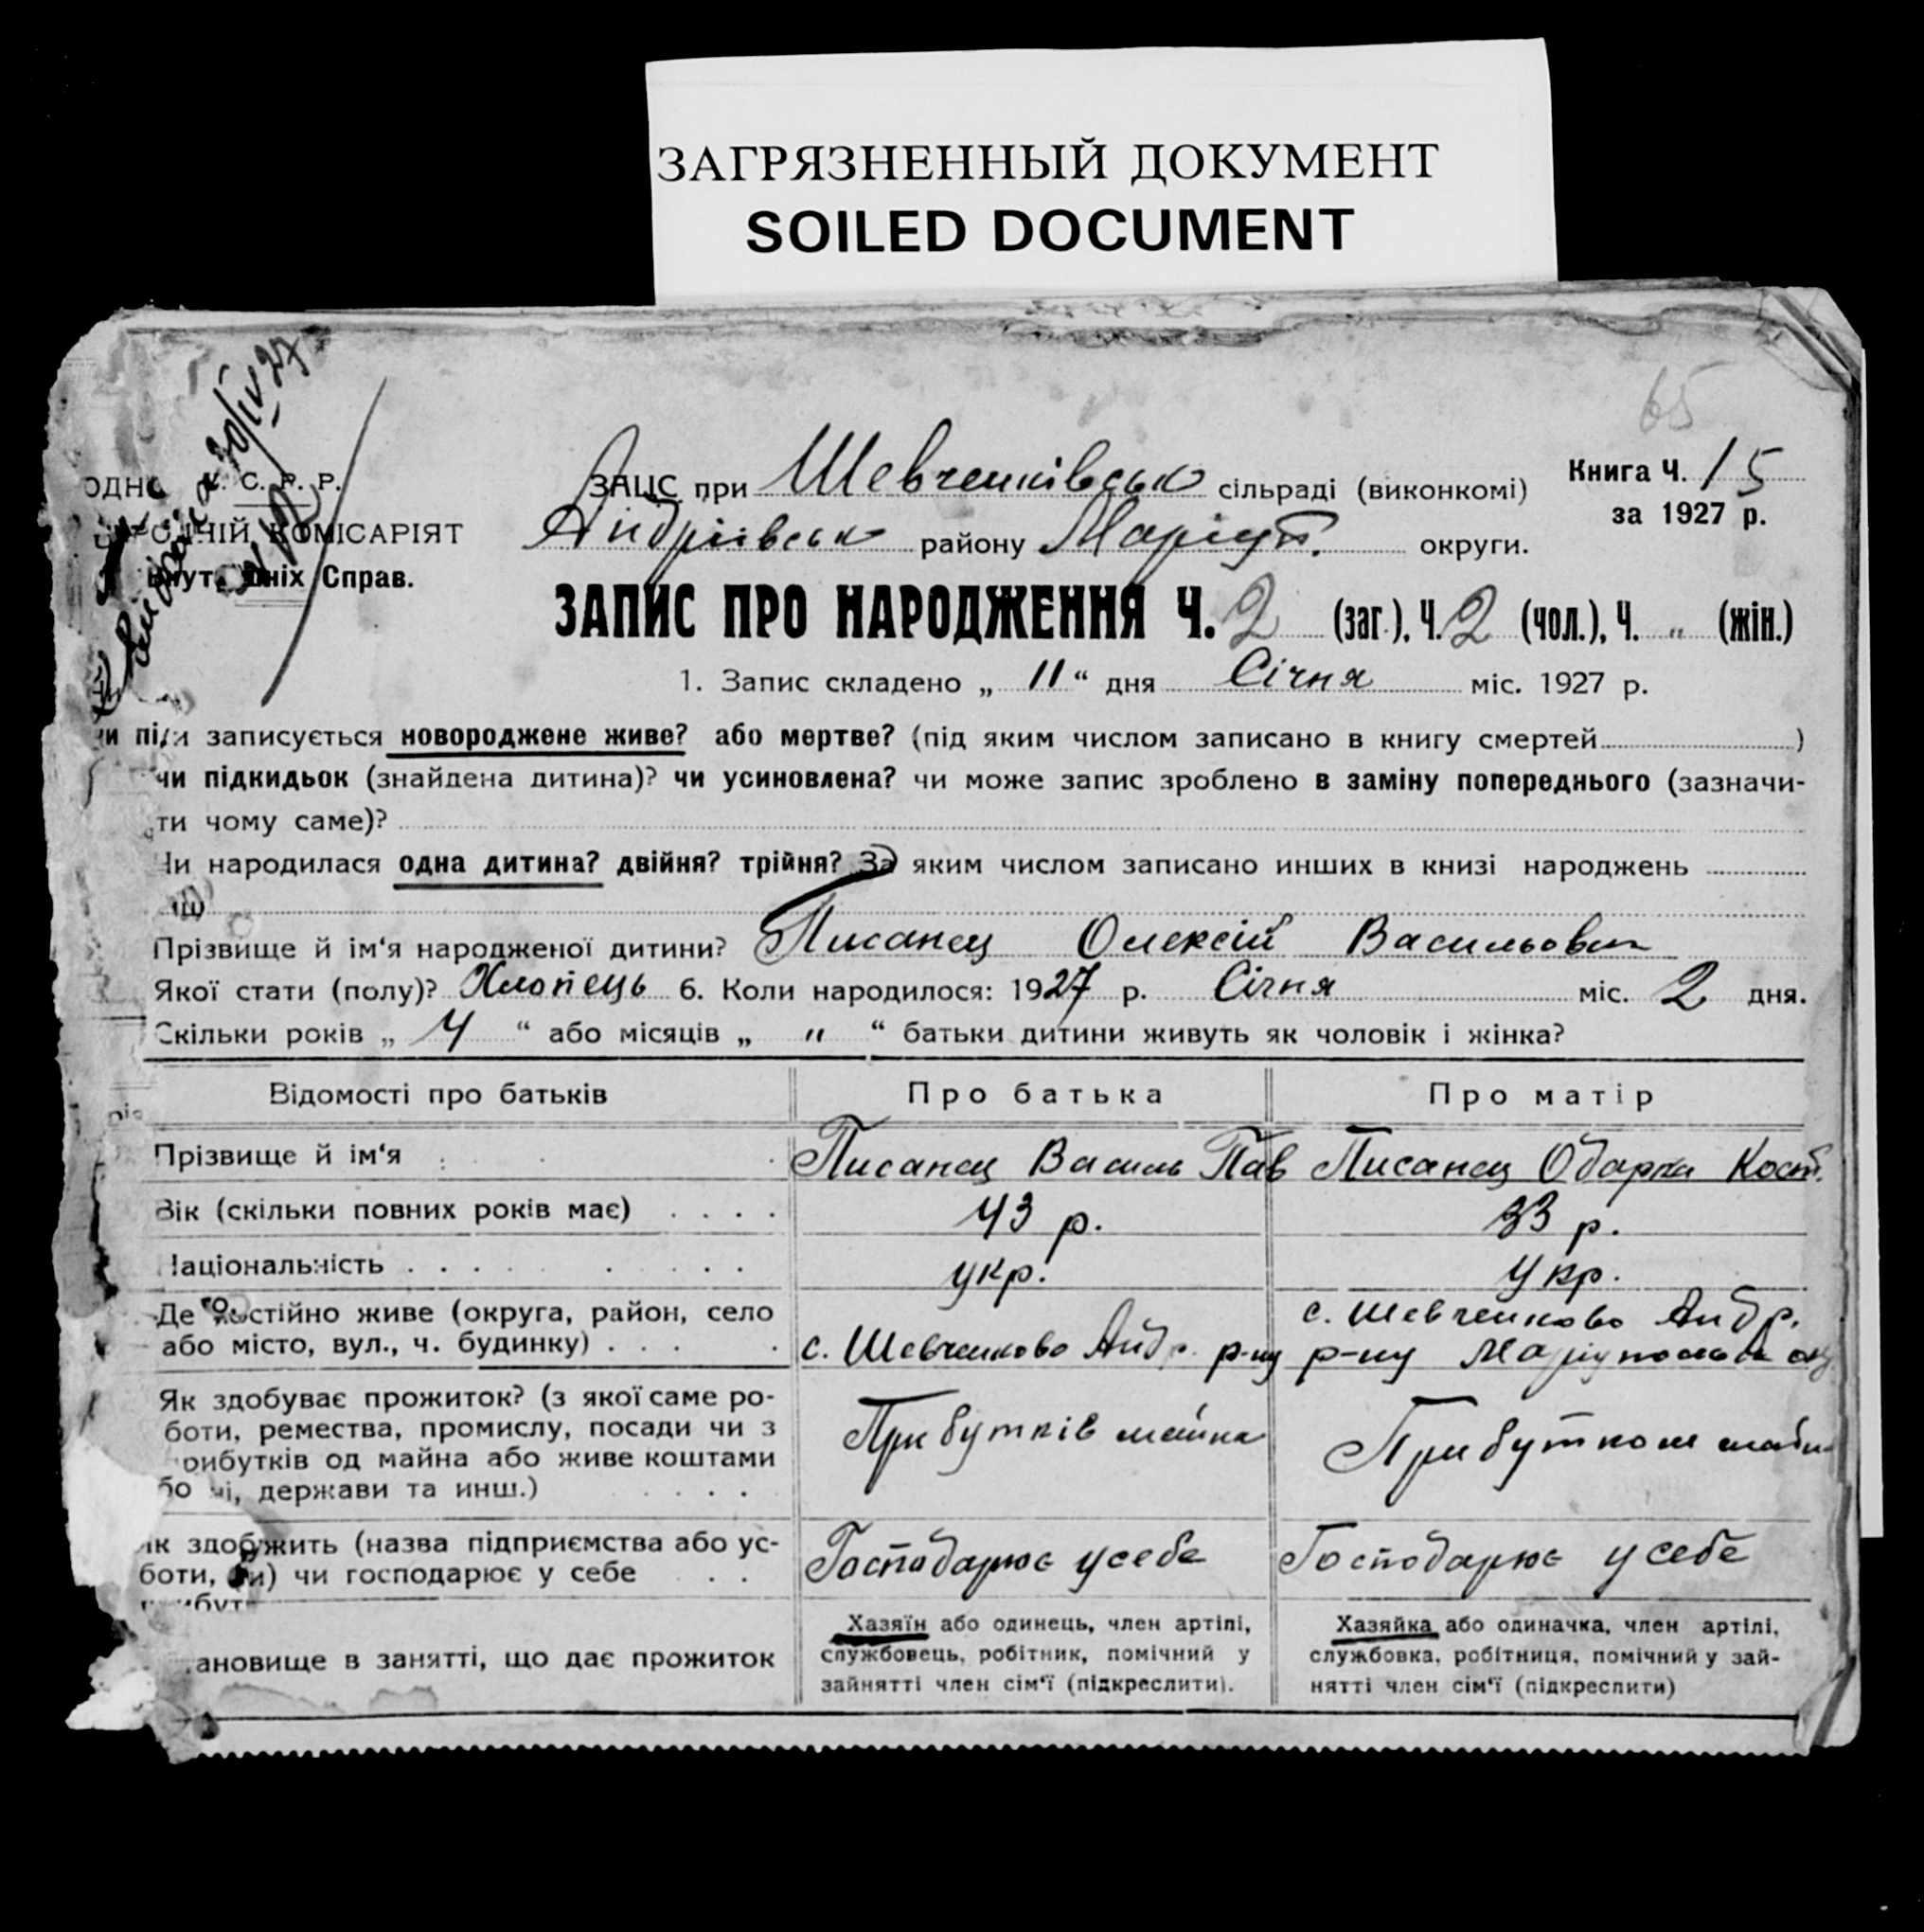 ЗАГРЯЗНЕННЫЙ ДОКУМЕНТ
SOILED DOCUMENT
65
30/IV 27
С. Р. Р.
КОМІСАРІЯТ
Справ.
ЗАЦС при Шевченківськ сільраді (виконкомі)
Андріївськ району Маріуп. округи.
Книга Ч. 15
за 1927 р.
ЗАПИС ПРО НАРОДЖЕННЯ Ч. 2 (заг.), Ч. 2 (чол.), Ч. „ (жін.)
1. Запис складено „ 11 “ дня Січня міс. 1927 р.
записується новороджене живе? або мертве? (під яким числом записано в книгу смертей )
чи підкидьок (знайдена дитина)? чи усиновлена? чи може запис зроблено в заміну попереднього (зазначи-
ти чому саме)?
Чи народилася одна дитина? двійня? трійня? За яким числом записано инших в книзі народжень
Прізвище й ім‘я народженої дитини? Писанец Олексій Васильович
Якої стати (полу)? Хлопець 6. Коли народилося: 1927 р. Січня міс. 2 дня.
Скільки років „ 4 “ або місяців „ " “ батьки дитини живуть як чоловік і жінка?
Відомості про батьків Про батька Про матір
Прізвище й ім‘я Писанец Василь Пав Писанец Одарка Кост.
Вік (скільки повних років має) 43 р. 33 р.
Національність укр. Укр.
Де постійно живе (округа, район, село
або місто, вул., ч. будинку)
с. Шевченково Андр. р-ну
с. Шевченково Андр.
р-ну
Як здобуває прожиток? (з якої саме ро-
боти, ремества, промислу, посади чи з
рибутків од майна або живе коштами
держави та инш.)
Прибутків майна
Прибутком
(назва підприємства або ус-
боти, чи) чи господарює у себе
Господарює у себе
Господарює у себе
ановище в занятті, що дає прожиток
Хазяїн або одинець, член артілі,
службовець, робітник, помічний у
зайнятті член сім‘ї (підкреслити).
Хазяйка або одиначка, член артілі,
службовка, робітниця, помічний у зай-
нятті член сім‘ї (підкреслити)